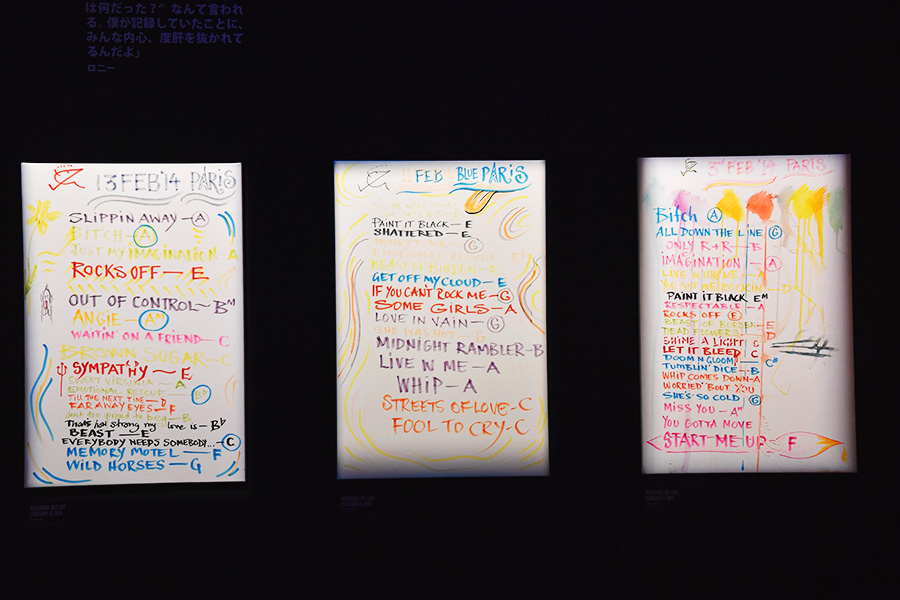 は何だった？” なんて言われ
る。僕が記録していたことに、
みんな内心、度肝を抜かれて
るんだよ」
ロニー
13 FEB '14 PARIS
SLIPPIN AWAY — A
BITCH — A
JUST MY IMAGINATION A
ROCKS OFF — E
OUT OF CONTROL ~ Bm
ANGIE — Am
WAITIN' ON A FRIEND — C
BROWN SUGAR — C
SYMPATHY — E
SWEET VIRGINIA — A
EMOTIONAL RESCUE — Eb
TILL THE NEXT TIME — D
FAR AWAY EYES — F
aint too proud to beg — B
Thats how strong my love is — Bb
BEAST — E
EVERYBODY NEEDS SOMEBODY... — C
MEMORY MOTEL — F
WILD HORSES — G
FEB BLUE PARIS
PAINT IT BLACK — E
SHATTERED — E
G
EMOTIONAL RESCUE
BEAST OF BURDEN — E
GET OFF MY CLOUD — E
IF YOU CAN'T ROCK ME — G
SOME GIRLS — A
LOVE IN VAIN — G
SHE WAS HOT — G
MIDNIGHT RAMBLER - B
LIVE W ME — A
WHIP — A
STREETS OF LOVE - C
FOOL TO CRY - C
3rd FEB '14 PARIS
Bitch A
ALL DOWN THE LINE G
ONLY R+R — B
IMAGINATION — A
LIVE WITH ME — A
YOU GOT ME ROCKIN — D
PAINT IT BLACK Em
RESPECTABLE — A
ROCKS OFF E
BEAST OF BURDEN — E
DEAD FLOWERS D
SHINE A LIGHT C
LET IT BLEED C
DOOM N GLOOM
TUMBLIN' DICE — B
WHIP COMES DOWN — A
WORRIED 'BOUT YOU
SHE'S SO COLD G
MISS YOU — Am
YOU GOTTA MOVE
START ME UP — F